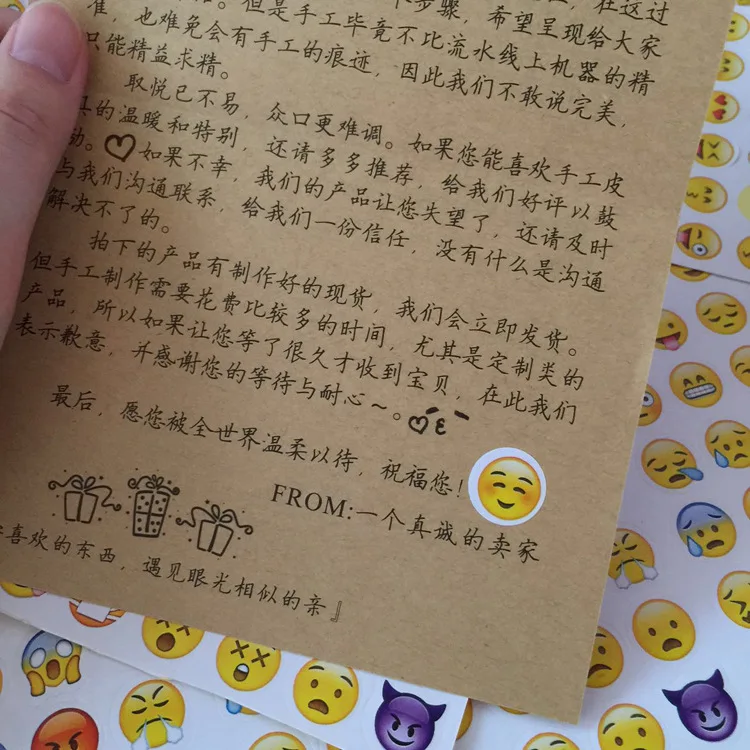 但是手工毕竟不比流水线上机器的精
步骤，希望呈现给大家
准，也难免会有手工的痕迹，因此我们不敢说完美，
只能精益求精。
取悦己不易，众口更难调。如果您能喜欢手工皮
具的温暖和特别，还请多多推荐，给我们好评以鼓
励。如果不幸，我们的产品让您失望了，还请及时
与我们沟通联系，给我们一份信任，没有什么是沟通
解决不了的。
拍下的产品有制作好的现货，我们会立即发货。
但手工制作需要花费比较多的时间，尤其是定制类的
产品，所以如果让您等了很久才收到宝贝，在此我们
表示歉意，并感谢您的等待与耐心～。
最后，愿您被全世界温柔以待，祝福您！
FROM:一个真诚的卖家
喜欢的东西，遇见眼光相似的亲』